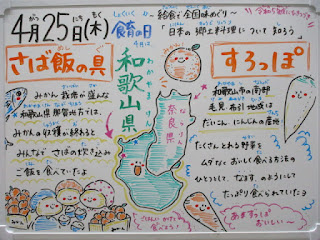 4月25日(木)
食育の日
～給食で全国味めぐり～
「日本の郷土料理について知ろう」
さば飯の具
和歌山県
わかやまけん
すろっぽ
みかん栽培が盛んな
和歌山県那智地方は、
みかんの収穫が終わると
みんなで、さばの炊き込み
ご飯を食べていたよ
奈良県
和歌山市の南部
毛見・布引地域は
だいこん、にんじんの産地
たくさんとれる野菜を
ムダなくおいしく食べる方法の
ひとつとして、なます、のようにして
たっぷり食べられていたよ
ごはんにかけて
食べよう!
あまずっぱく
おいしい～